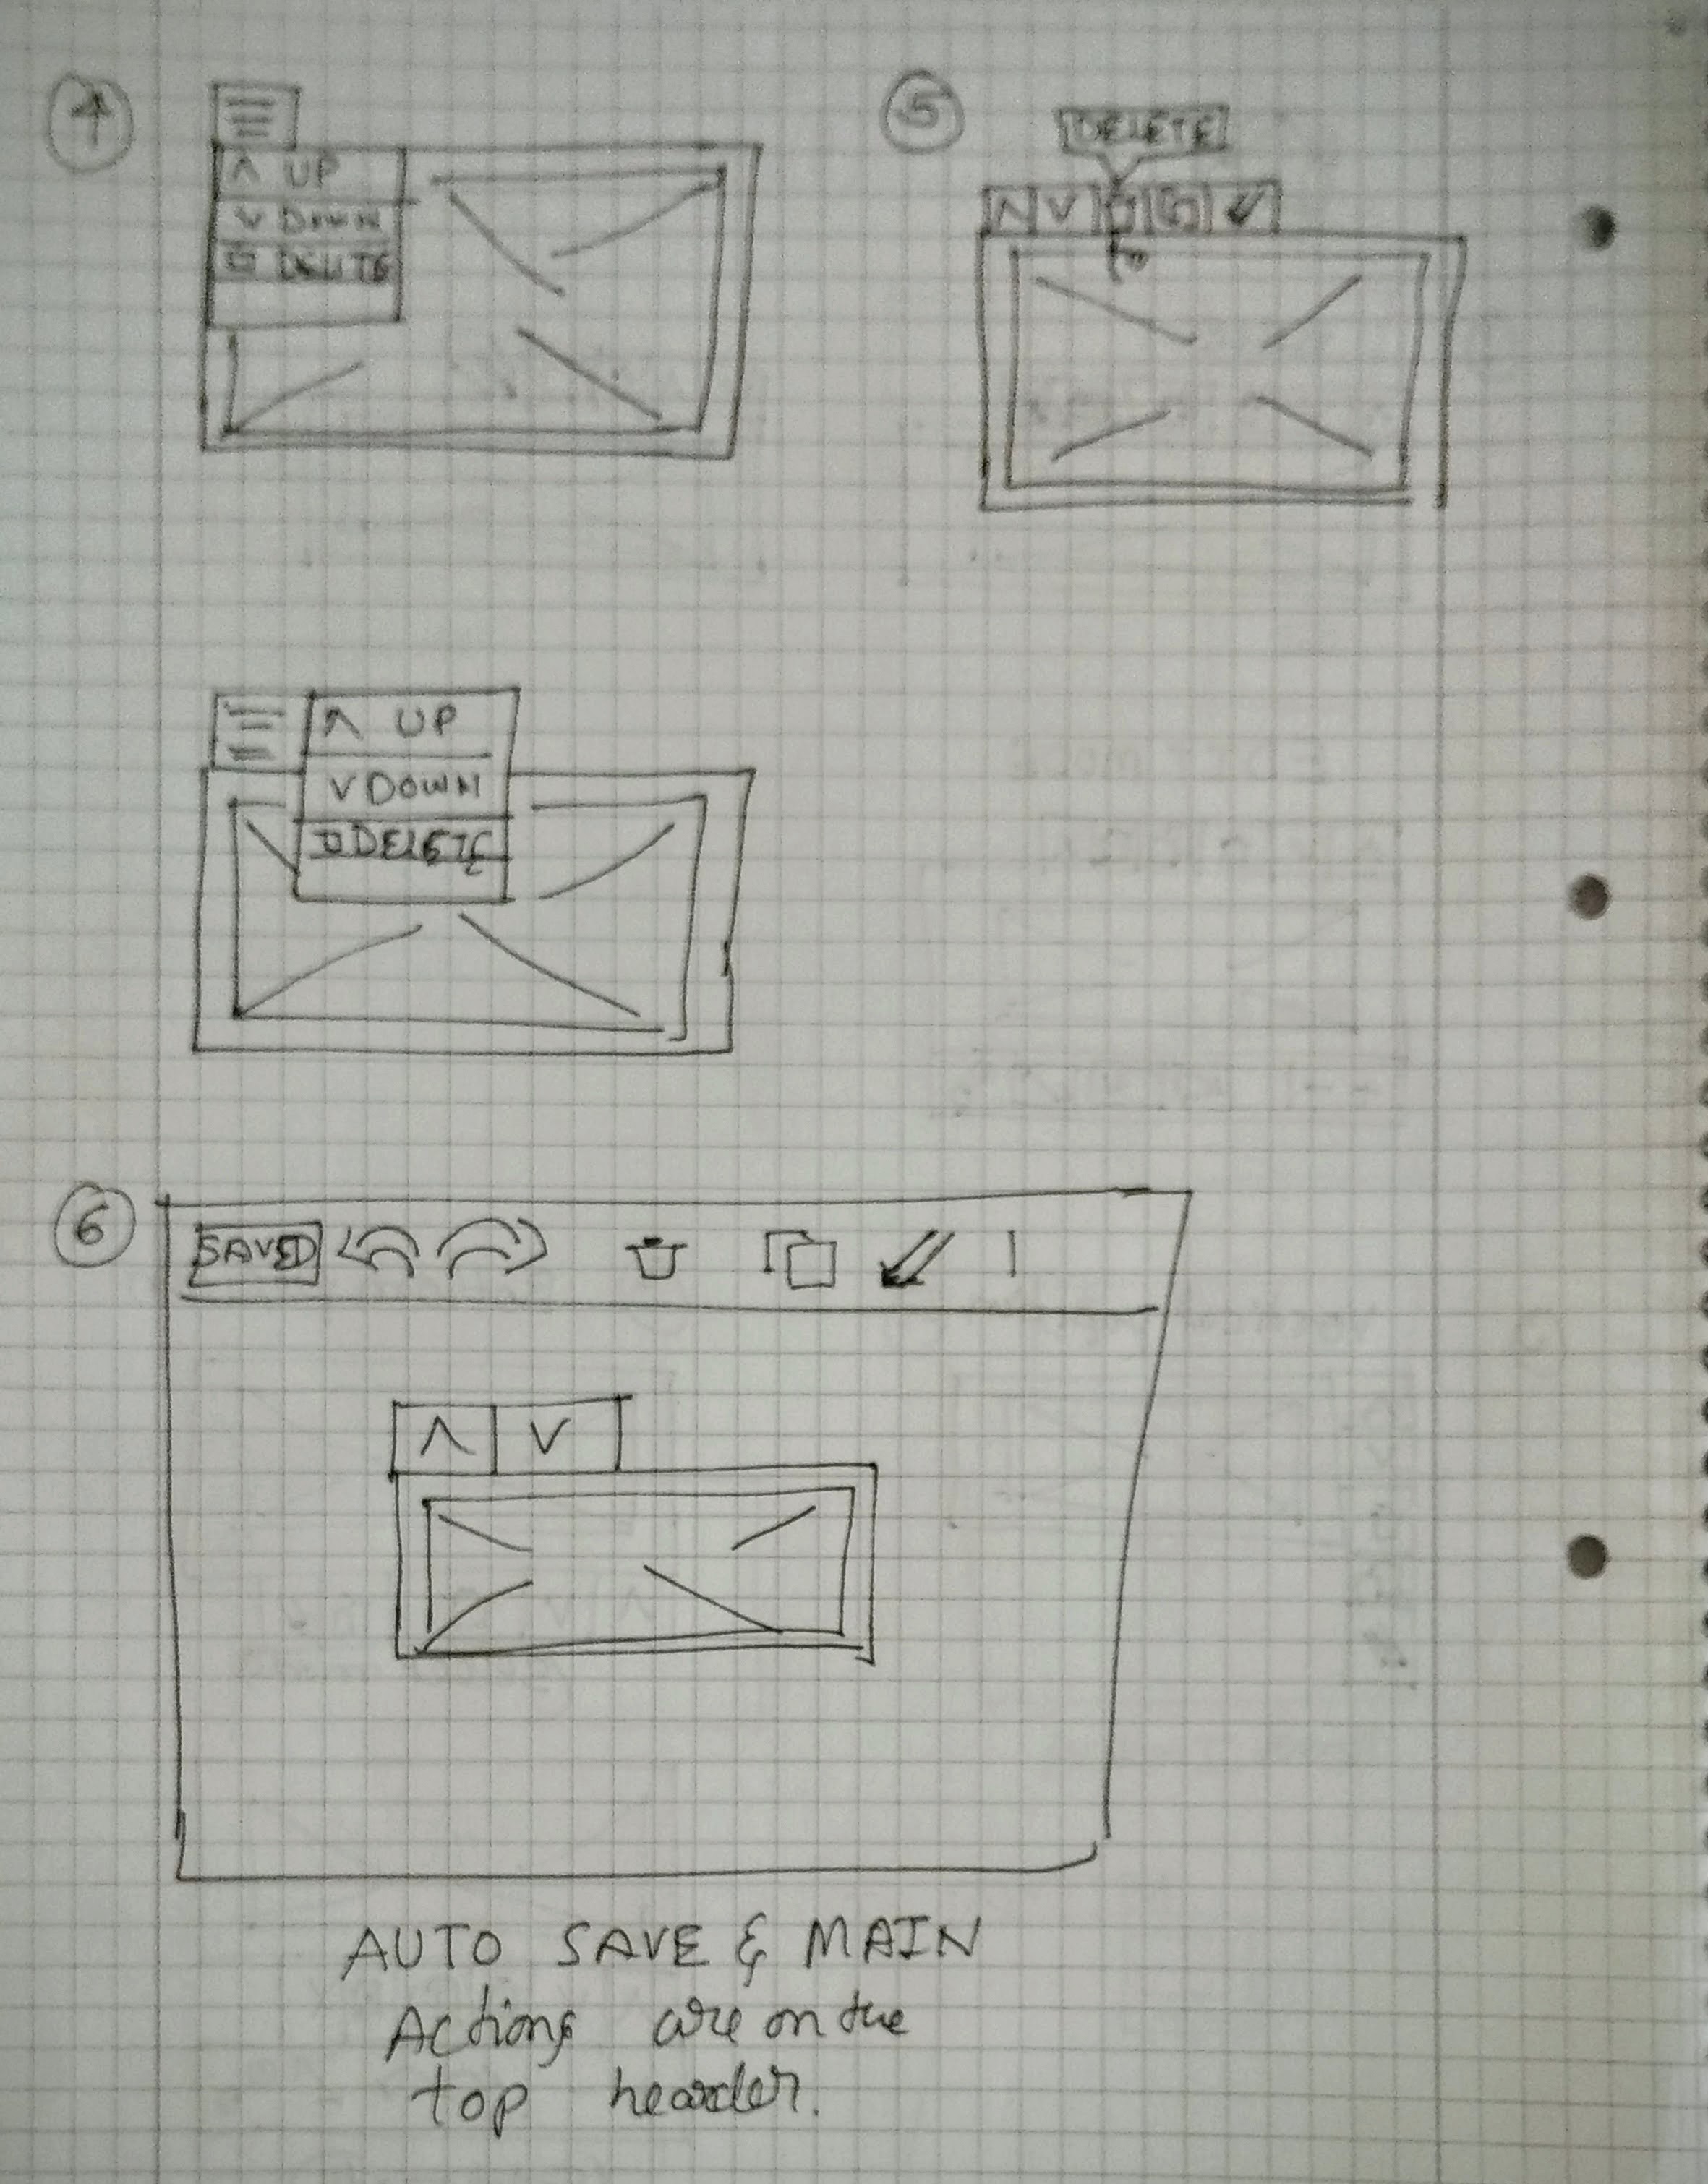 4
UP
DOWN
DELITE
5
DELETE
UP
DOWN
DELETE
6
SAVED
AUTO SAVE & MAIN
Actions are on the
top hearder.